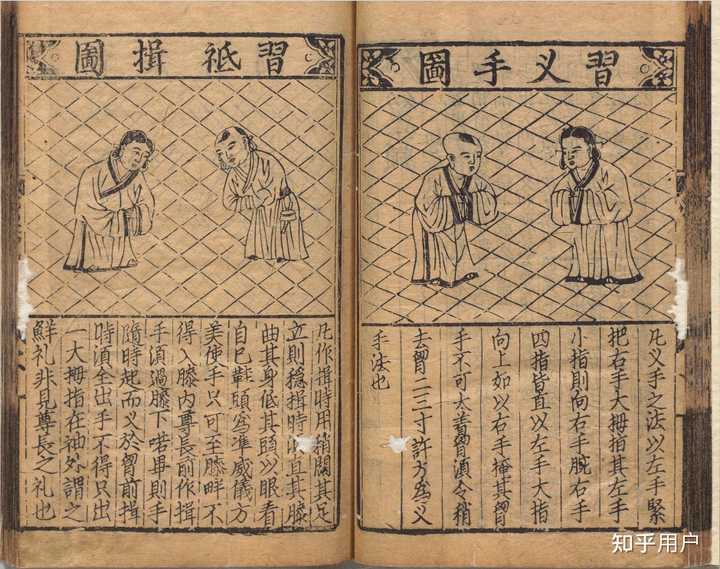 習叉手圖
凡叉手之法以左手緊
把右手大拇指其左手
小指則向右手腕右手
四指皆直以左手大指
向上如以右手掩其胷
手不可太著胷湏令稍
去胷二三寸許方為叉
手法也
習祗揖圖
凡作揖時用稍闊其足
立則穩揖時直其膝
曲其身低其頭以眼看
自己鞋頭為準威儀方
美使手只可至膝畔不
得入膝内尊長前作揖
手湏過膝下喏畢則手
隨時起而叉於胷前揖
時湏全出手不得只出
一大拇指在袖外謂之
鮮礼非見尊長之礼也
知乎用户